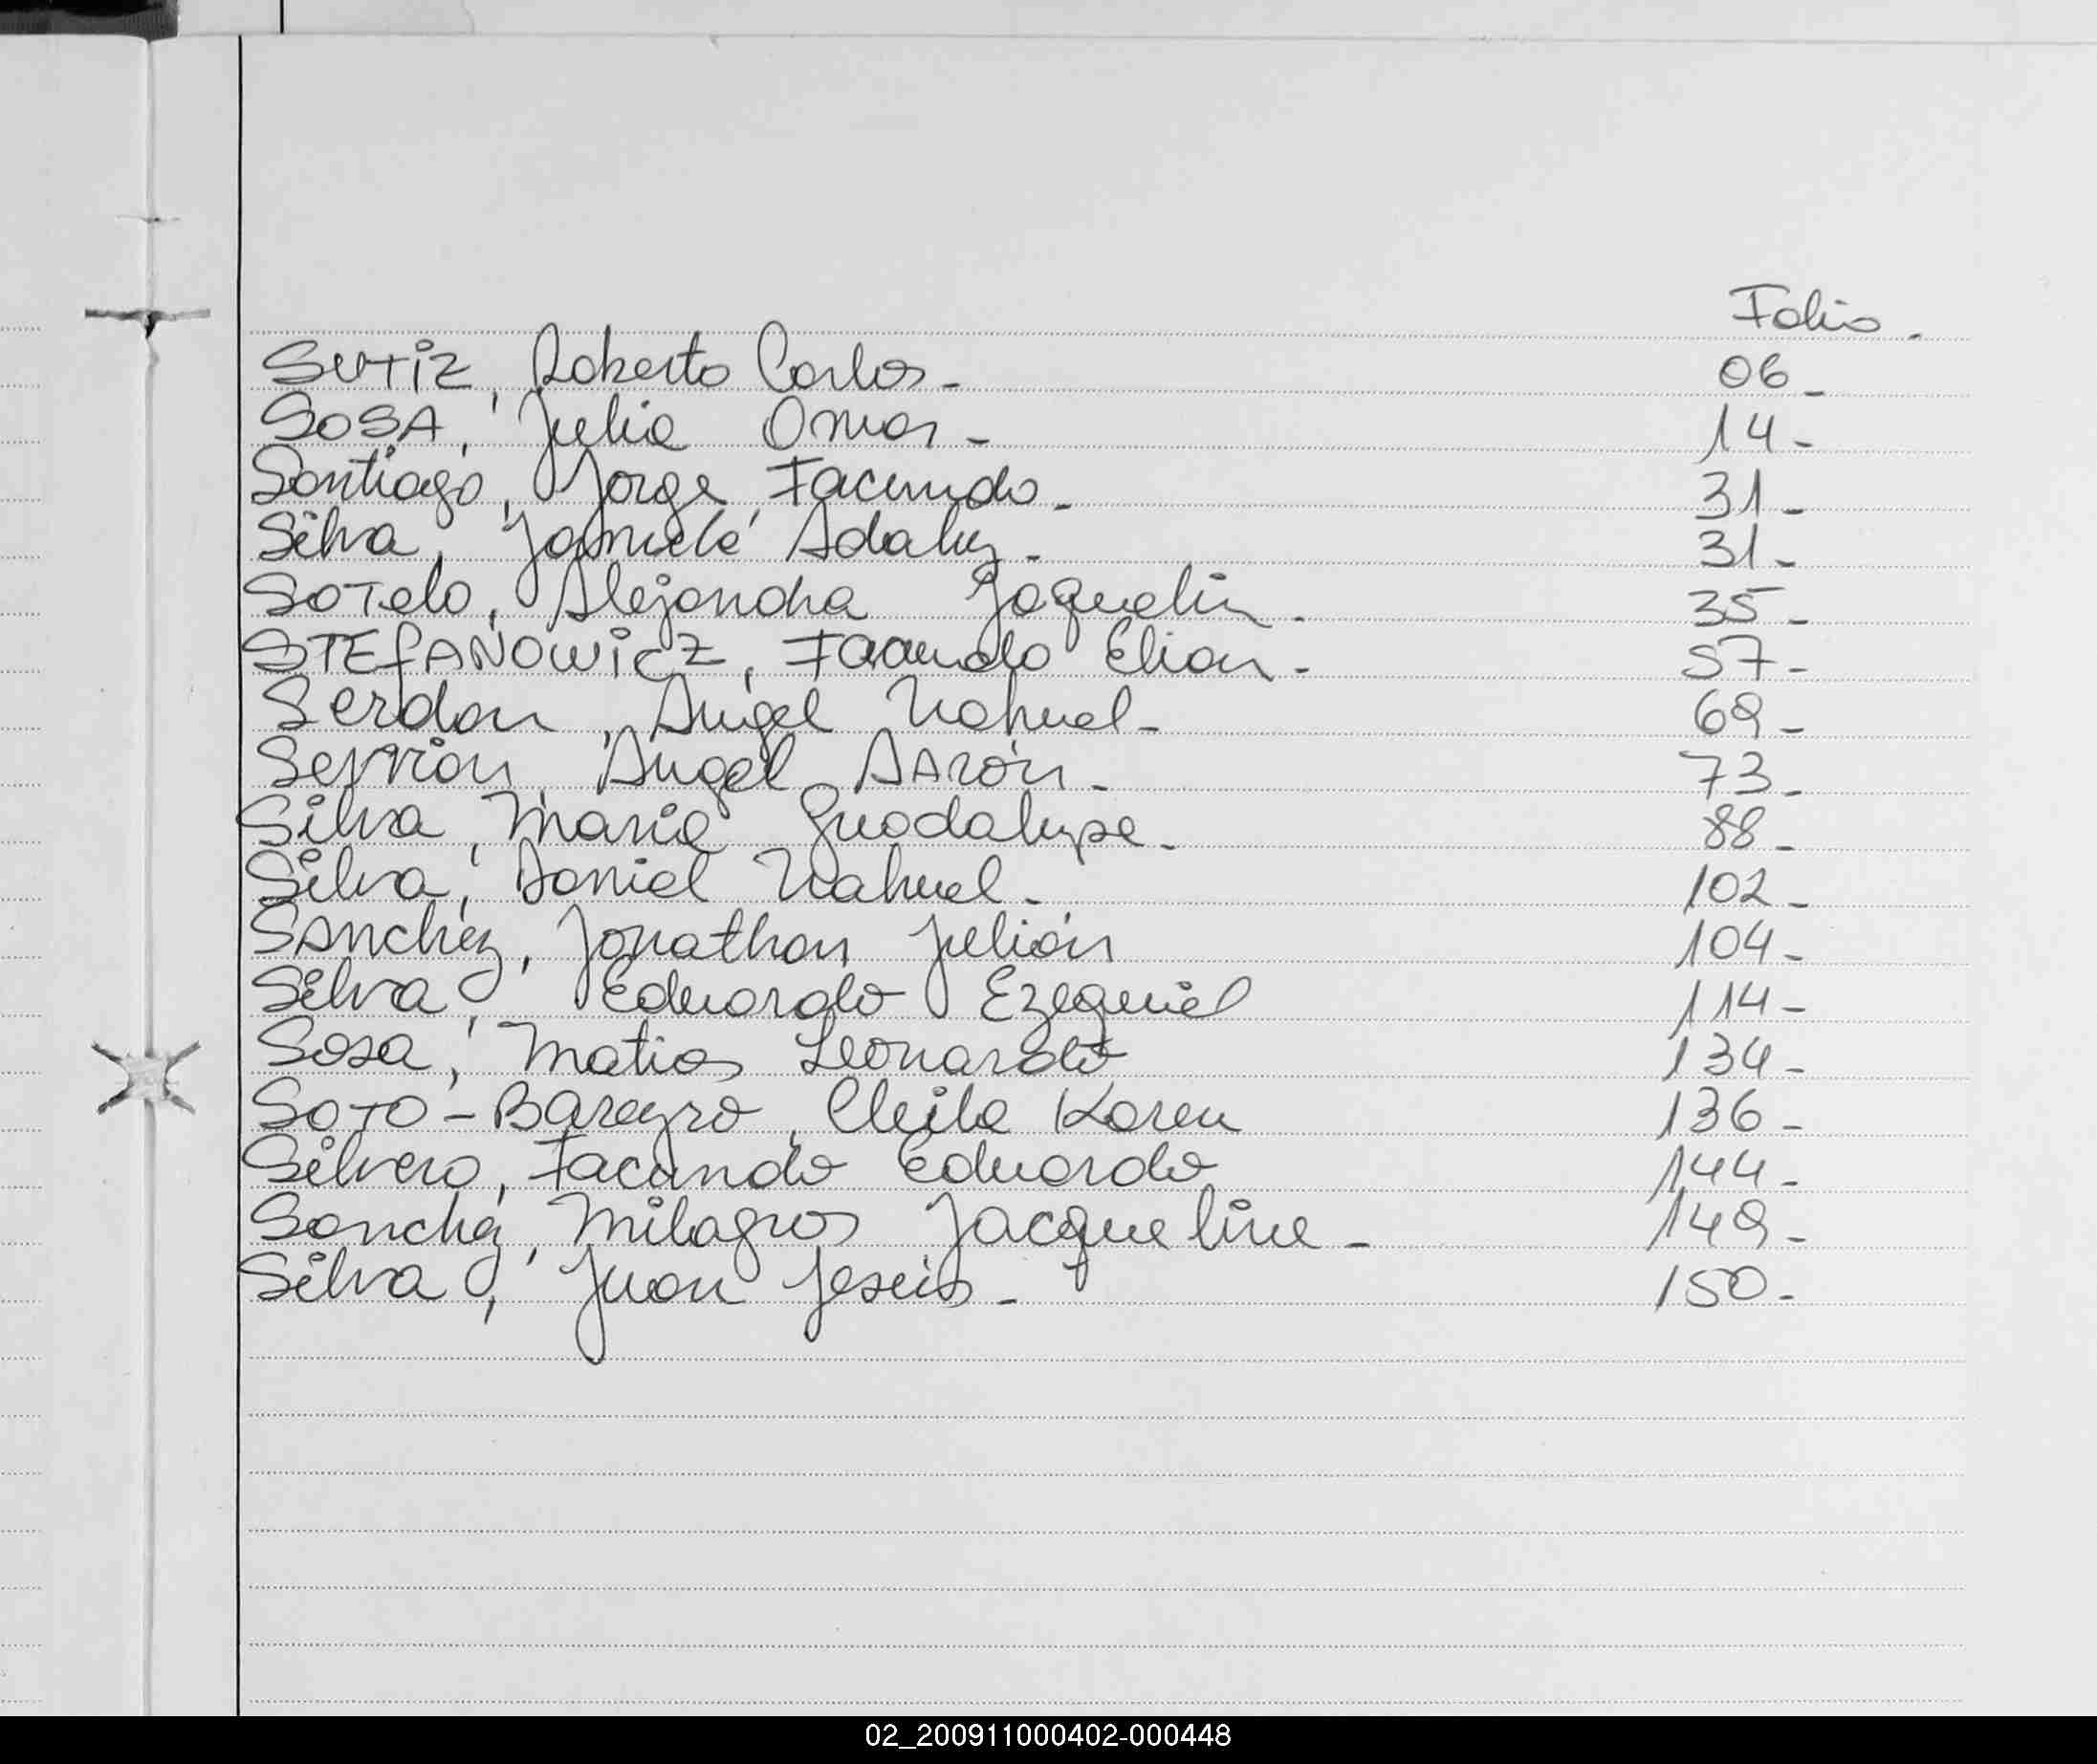 Folio.
SUTIZ, Roberto Carlos- 06-
SOSA, Julio Omar- 14-
Santiago, Jorge Facundo- 31-
Silva, Adaluz- 31-
SOTelo, Alejandra Jaquelin- 35-
STEFANOWICZ, Facundo Elian- 57-
Serdan, Angel Nahuel- 69-
Angel AARón- 73-
Silva, Maria Guadalupe- 88-
Silva, Daniel Nahuel- 102-
SAnchez, Jonathan Julián 104-
Silva, Eduardo Ezequiel 114-
Sosa, Matias Leonardo 134-
SOTO-Bareyro, Karen 136-
Silvero, Facundo Eduardo 144-
Sanchez, Milagros Jacqueline- 149-
Silva, Juan Jesús- 150-
02_200911000402-000448